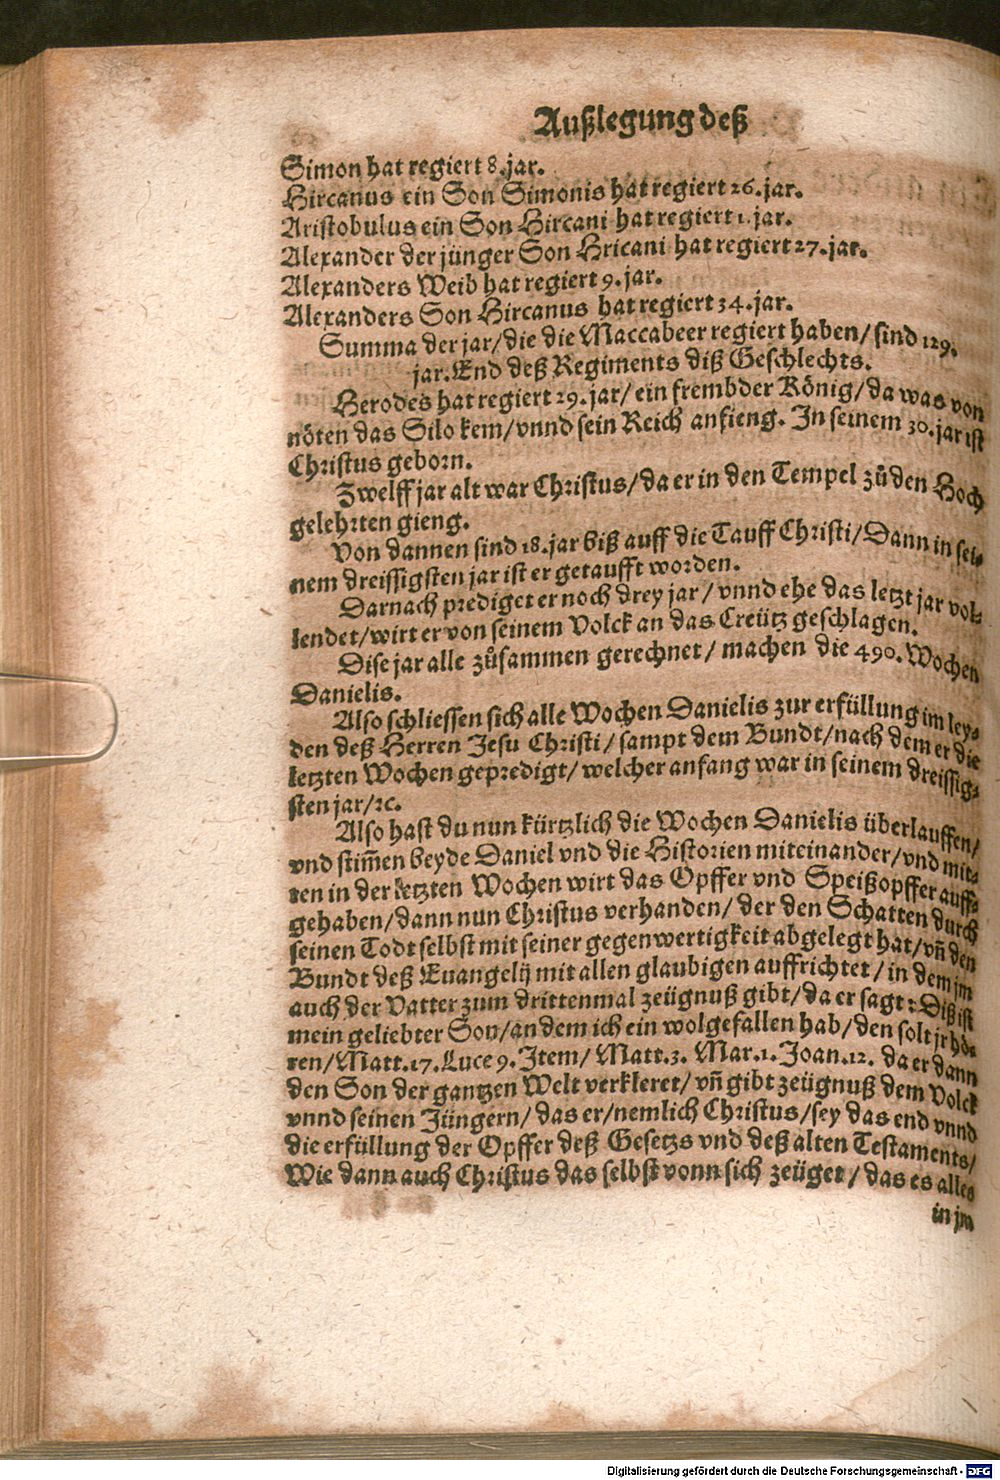 Außlegung deß
Simon hat regiert 8. jar.
Hircanus ein Son Simonis hat regiert 26. jar.
Aristobulus ein Son Hircani hat regiert 1. jar.
Alexander der jünger Son Hricani hat regiert 27. jar.
Alexanders Weib hat regiert 9. jar.
Alexanders Son Hircanus hat regiert 34. jar.
Summa der jar/ die die Maccabeer regiert haben/ sind 129.
jar. End deß Regiments diß Geschlechts.
Herodes hat regiert 29. jar/ ein frembder König/ da was von
nöten das Silo kem/ vnnd sein Reich anfieng. In seinem 30. jar ist
Christus geborn.
Zwelff jar alt war Christus/ da er in den Tempel zů den Hoch
gelehrten gieng.
Von dannen sind 18. jar biß auff die Tauff Christi/ Dann in sei-
nem dreissigsten jar ist er getaufft worden.
Darnach prediget er noch drey jar/ vnnd ehe das letzt jar vol-
lendet/ wirt er von seinem Volck an das Creütz geschlagen.
Dise jar alle zůsammen gerechnet/ machen die 490. Wochen
Danielis.
Also schliessen sich alle Wochen Danielis zur erfüllung im ley-
den deß Herren Jesu Christi/ sampt dem Bundt/ nach dem er die
letzten Wochen gepredigt/ welcher anfang war in seinem dreissig-
sten jar/ ꝛc.
Also hast du nun kürtzlich die Wochen Danielis überlauffen/
vnd stim̃en beyde Daniel vnd die Historien miteinander/ vnd mit-
ten in der letzten Wochen wirt das Opffer vnd Speißopffer auff-
gehaben/ dann nun Christus verhanden/ der den Schatten durch
seinen Todt selbst mit seiner gegenwertigkeit abgelegt hat/ vñ den
Bundt deß Euangelij mit allen glaubigen auffrichtet/ in dem jm
auch der Vatter zum drittenmal zeügnuß gibt/ da er sagt: Diß ist
mein geliebter Son/ an dem ich ein wolgefallen hab/ den solt jr hö-
ren/ Matt. 17. Luce 9. Item/ Matt. 3. Mar. 1. Joan. 12. da er dann
den Son der gantzen Welt verkleret/ vñ gibt zeügnuß dem Volck
vnnd seinen Jüngern/ das er/ nemlich Christus/ sey das end vnnd
die erfüllung der Opffer deß Gesetzs vnd deß alten Testaments/
Wie dann auch Christus das selbst vonn sich zeüget/ das es alles
in jm
Digitalisierung gefördert durch die Deutsche Forschungsgemeinschaft - DFG